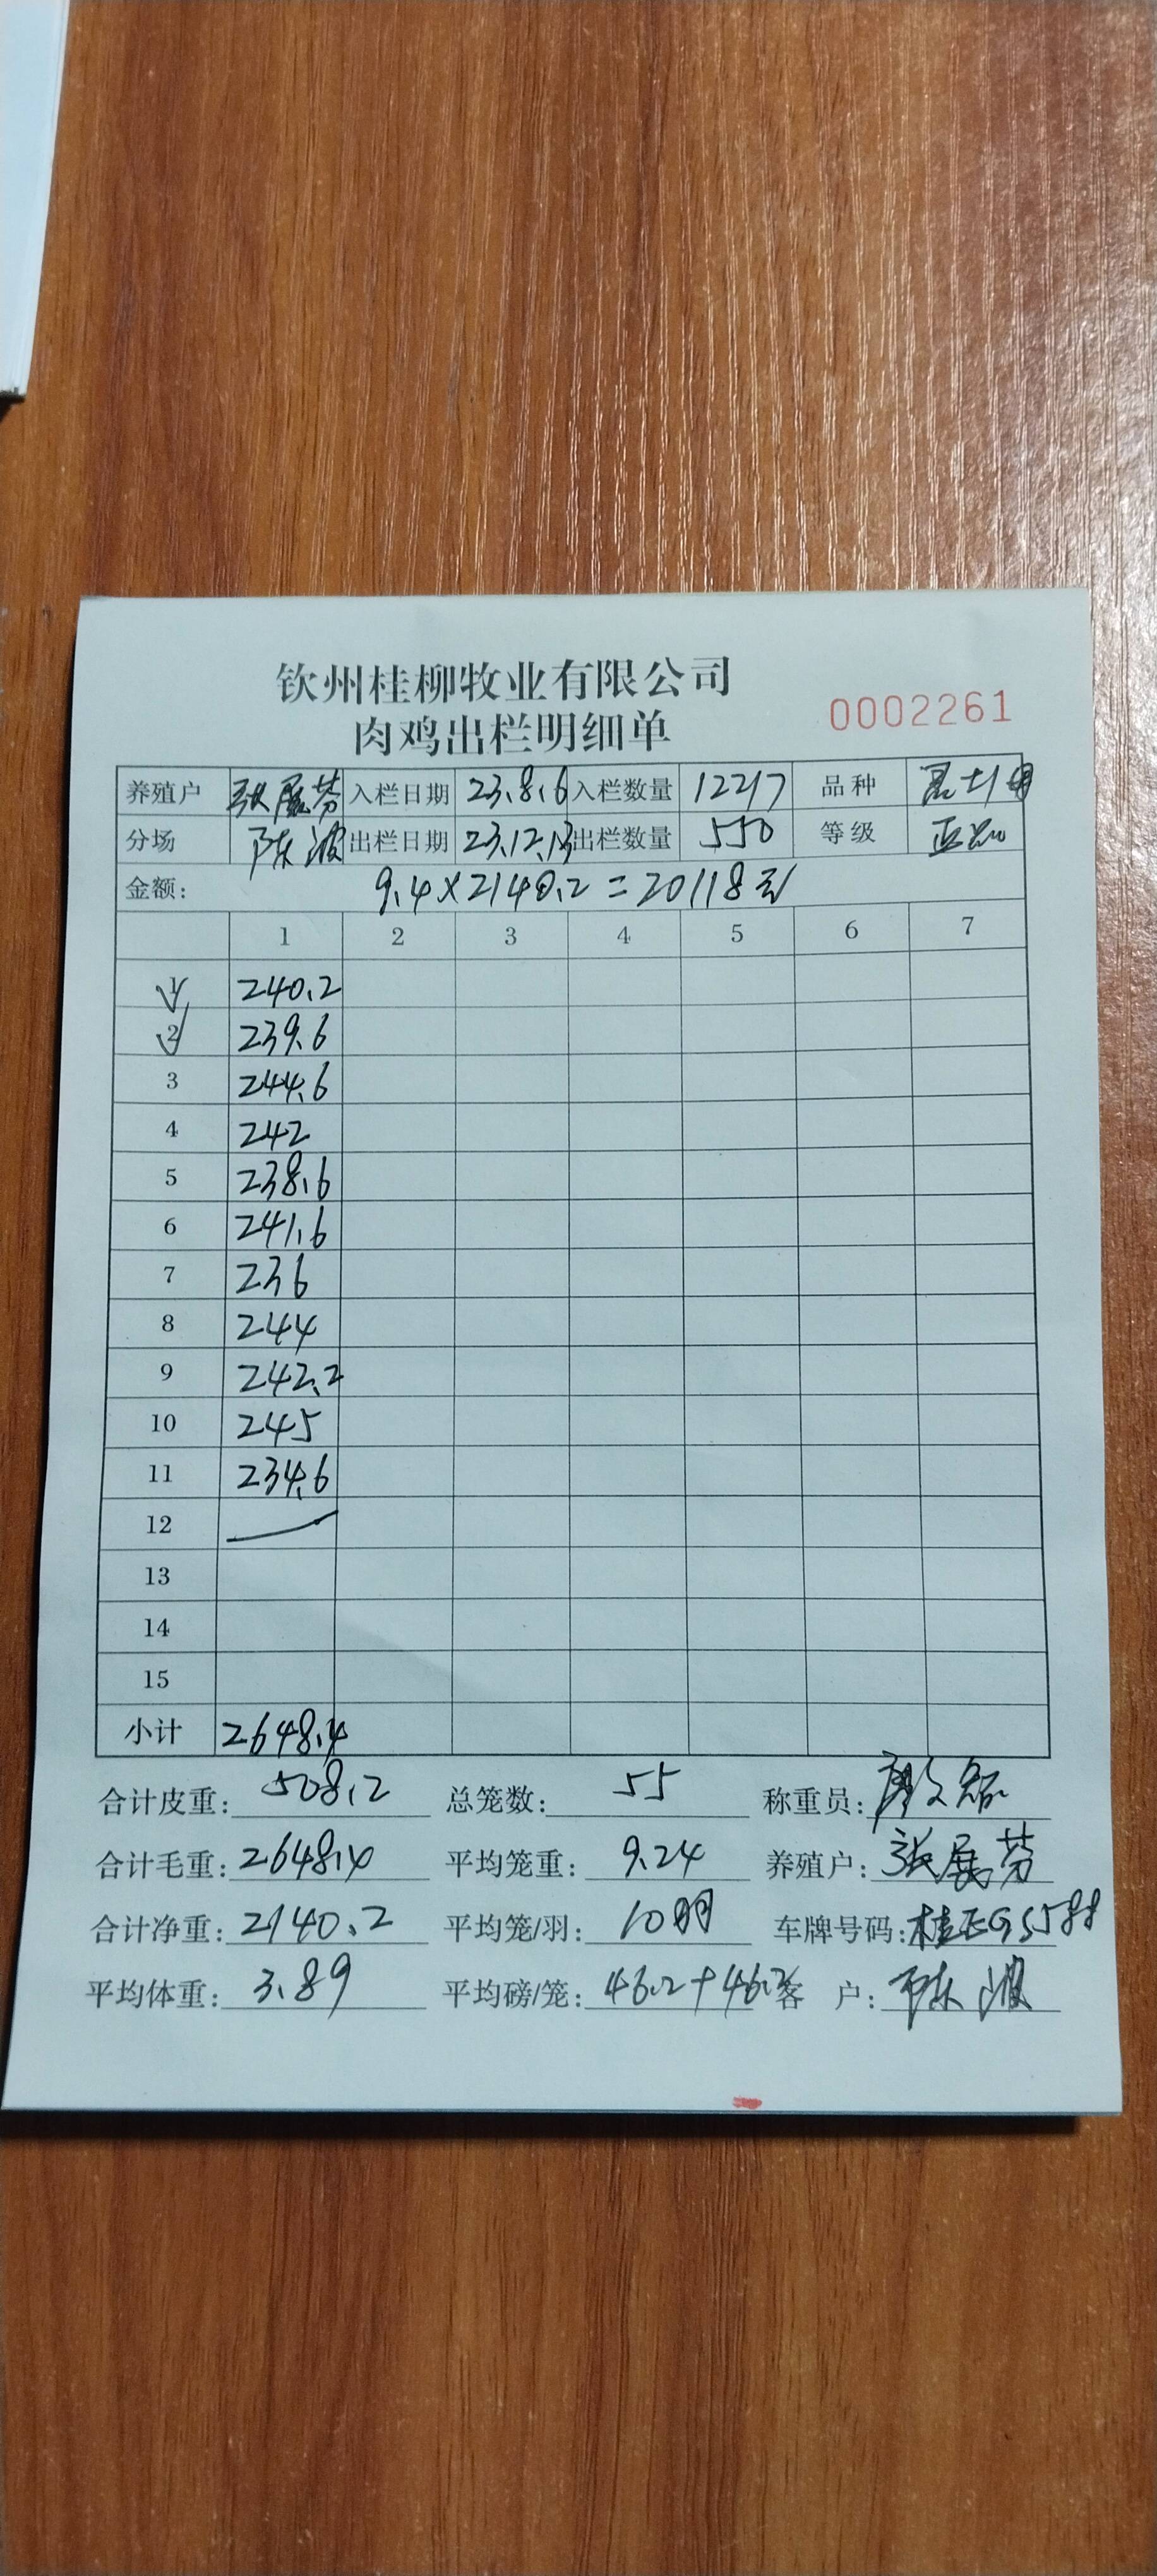 钦州桂柳牧业有限公司
肉鸡出栏明细单
0002261
养殖户 张展芬 入栏日期 23.8.6 入栏数量 12217 品种
分场 陈波 出栏日期 23.12.13 出栏数量 550 等级
金额: 9.4×2140.2=20118元
1 2 3 4 5 6 7
1 240.2
2 239.6
3 244.6
4 242
5 238.6
6 241.6
7 236
8 244
9 242.2
10 245
11 234.6
12
13
14
15
小计 2648.4
合计皮重: 508.2 总笼数: 55 称重员:
合计毛重: 2648.4 平均笼重: 9.24 养殖户: 张展芬
合计净重: 2140.2 平均笼/羽: 10羽 车牌号码:
平均体重: 3.89 平均磅/笼: 46.2+46.2 客 户: 陈波